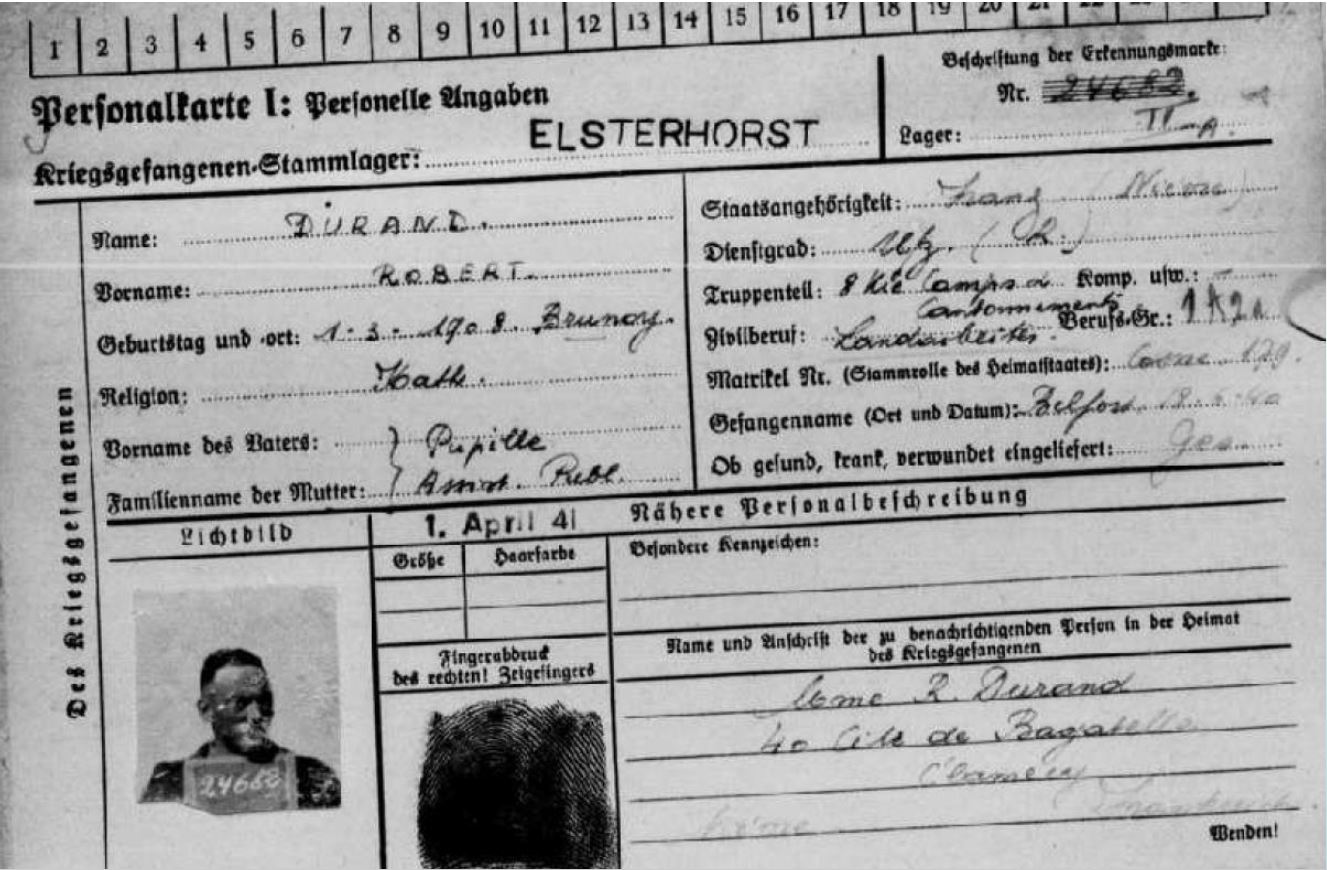 1 2 3 4 5 6 7 8 9 10 11 12 13 14 15 16 17 18 19 20 21
Personalkarte I: Personelle Angaben
Kriegsgefangenen-Stammlager: ELSTERHORST
Beschriftung der Erkennungsmarke:
Nr. 24682.
Lager: II A.
Des Kriegsgefangenen
Name: DURAND.
Vorname: ROBERT.
Geburtstag und -ort: 1-3-1908. Brunoy.
Religion: Kath.
Vorname des Vaters: } Pupille
Familienname der Mutter: } Assist. Publ.
Staatsangehörigkeit: Franz (Nièvre)
Dienstgrad: Ufz. (R.)
Truppenteil: 8 Kie Camps a Komp. usw.: -
Cantonnements
Zivilberuf: Landarbeiter. Berufs-Gr.: 1 K2a
Matrikel Nr. (Stammrolle des Heimatstaates): Cosne 179.
Gefangenname (Ort und Datum): Belfort 18-6-40
Ob gesund, krank, verwundet eingeliefert: Ges
Lichtbild
24682
1. April 41
Größe Haarfarbe
Fingerabdruck
des rechten! Zeigefingers
Nähere Personalbeschreibung
Besondere Kennzeichen:
Name und Anschrift der zu benachrichtigenden Person in der Heimat
des Kriegsgefangenen
Mme R. Durand
40 Cité de Bagatelle
Clamecy
Nièvre Frankreich.
Wenden!